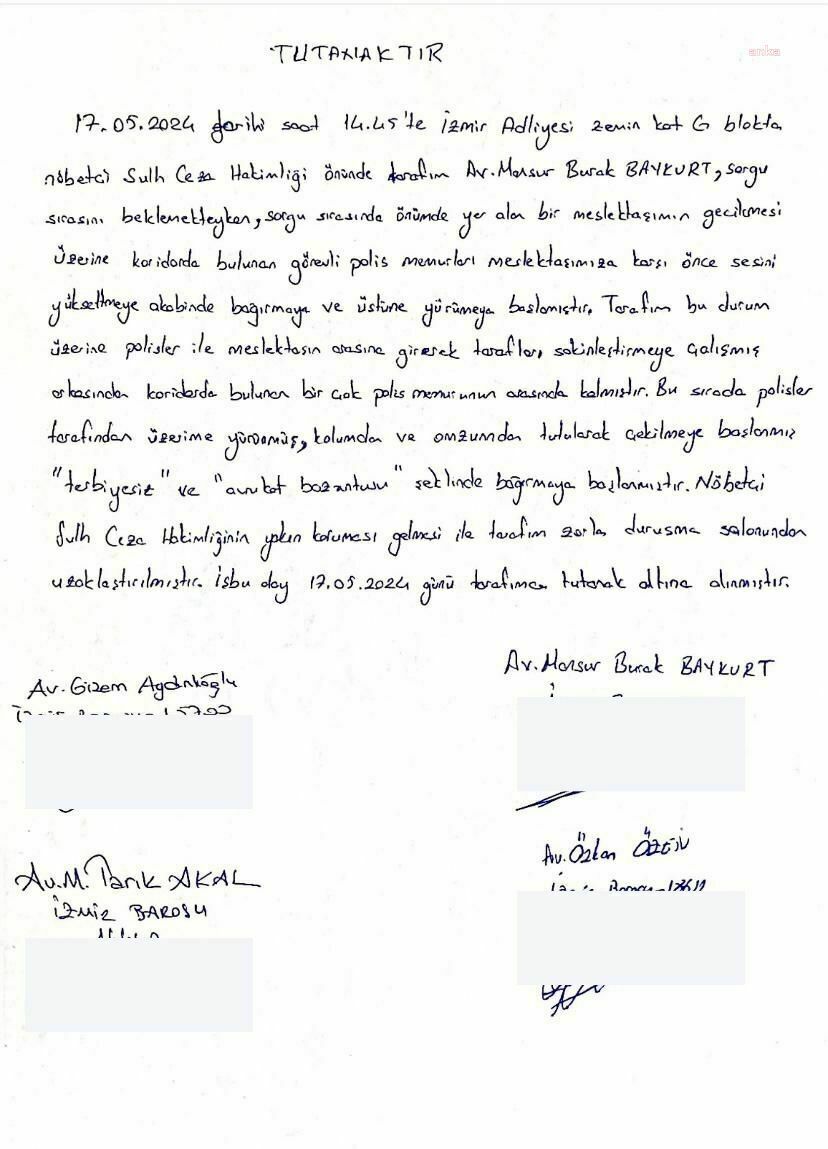 TUTANAKTIR
anka
17.05.2024 tarihi saat 14.45'te İzmir Adliyesi zemin kat G blokta
nöbetci Sulh Ceza Hakimliği önünde tarafım Av. Mansur Burak BAYKURT, sorgu
sırasını beklemekteyken, sorgu sırasında önümde yer alan bir meslektaşımın gecikmesi
üzerine koridorda bulunan görevli polis memurları meslektaşımıza karşı önce sesini
yükseltmeye akabinde bağırmaya ve üstüne yürümeye başlamıştır. Tarafım bu durum
üzerine polisler ile meslektaşın arasına girerek tarafları sakinleştirmeye çalışmış
arkasından koridorda bulunan bir çok polis memurunun arasında kalmıştır. Bu sırada polisler
tarafından üzerime yürünmüş, kolumdan ve omzumdan tutularak çekilmeye başlanmış
"terbiyesiz" ve "avukat bozuntusu" şeklinde bağırmaya başlanmıştır. Nöbetçi
Sulh Ceza Hakimliğinin yakın koruması gelmesi ile tarafım zorla duruşma salonundan
uzaklaştırılmıştır. İşbu olay 17.05.2024 günü tarafımca tutanak altına alınmıştır.
Av. Mansur Burak BAYKURT
Av. Gizem Aydınlıoğlu
Av. Özkan
Av. M. Tarık AKAL
İZMİR BAROSU